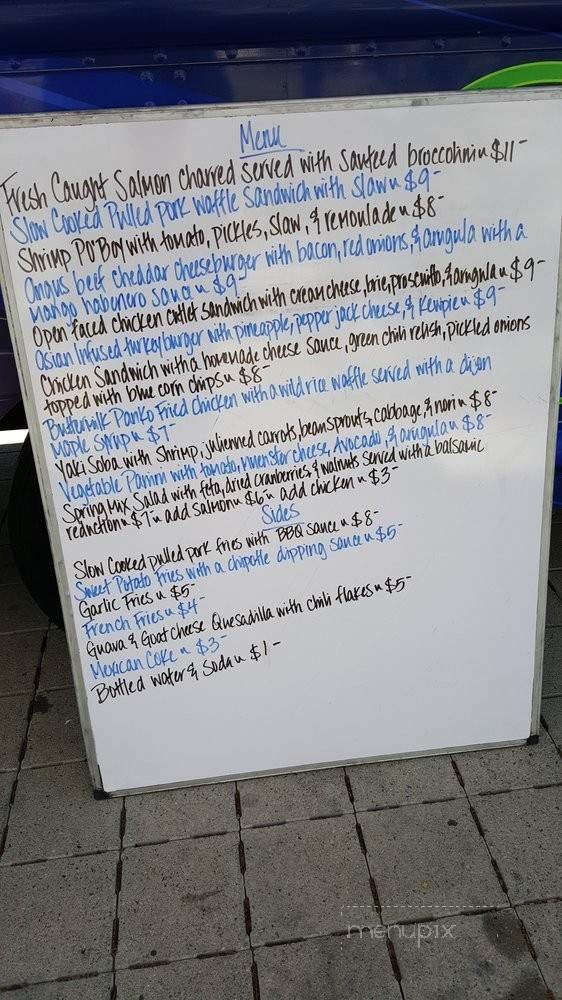 Menu
Fresh Caught Salmon charred served with sauteed broccolini $11-
Slow Cooked Pulled Pork Waffle Sandwich with slaw $9-
Shrimp Po'Boy with tomato, pickles, slaw, & remoulade $8-
Angus beef cheddar cheeseburger with bacon, red onions, & arugula with a
mango habenero sauce $9-
Open faced chicken cutlet sandwich with cream cheese, brie, prosciutto, & arugula $9-
Asian Infused turkey burger with pineapple, pepper jack cheese, & Kewpie $9-
Chicken Sandwich with a homemade cheese sauce, green chili relish, pickled onions
topped with blue corn chips $8-
Buttermilk Panko Fried Chicken with a wild rice waffle served with a dijon
maple syrup $7-
Yaki Soba with Shrimp, julienned carrots, bean sprouts, cabbage, & nori $8-
Vegetable Panini with tomato, muenster cheese, Avocado, & arugula $8-
Spring Mix Salad with feta, dried cranberries, & walnuts served with a balsamic
reduction $7 add salmon $6 add chicken $3-
Sides
Slow Cooked pulled pork fries with BBQ sauce $8-
Sweet Potato Fries with a chipotle dipping sauce $5-
Garlic Fries $5-
French Fries $4-
Guava & Goat cheese Quesadilla with chili flakes $5-
Mexican Coke $3-
Bottled water & Soda $1-
menupix